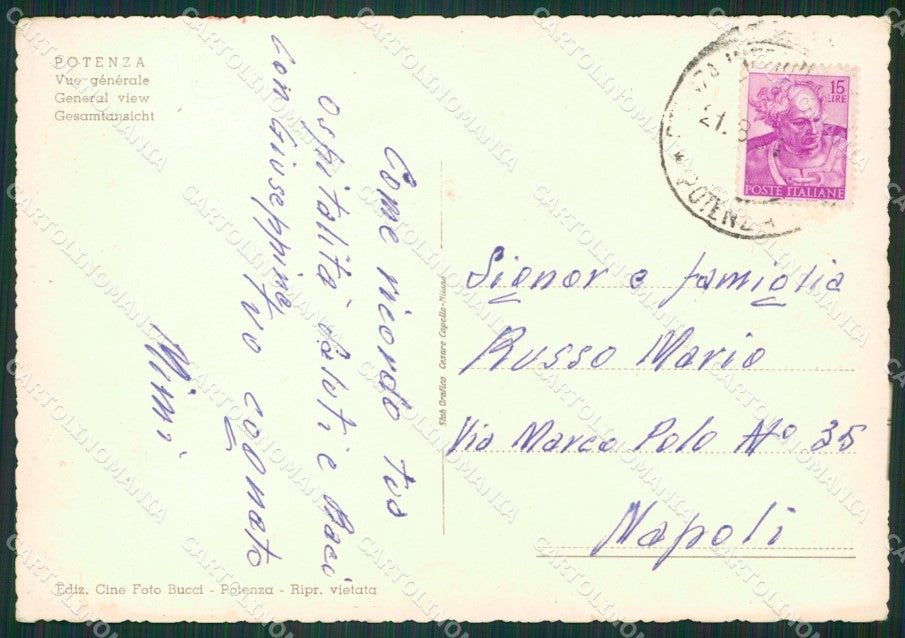 POTENZA
Vue générale
General view
Gesamtansicht
Come ricordo tua
Ospitalità Saluti e Baci
tuo cognato
con Giuseppina
Mimi
Stab Grafico Cesare Capello-Milano
21.8
POTENZA
15
LIRE
POSTE ITALIANE
Signor e famiglia
Russo Mario
Via Marco Polo No 35
Napoli
Ediz. Cine Foto Bucci - Potenza - Ripr. vietata
CARTOLINOMANIA